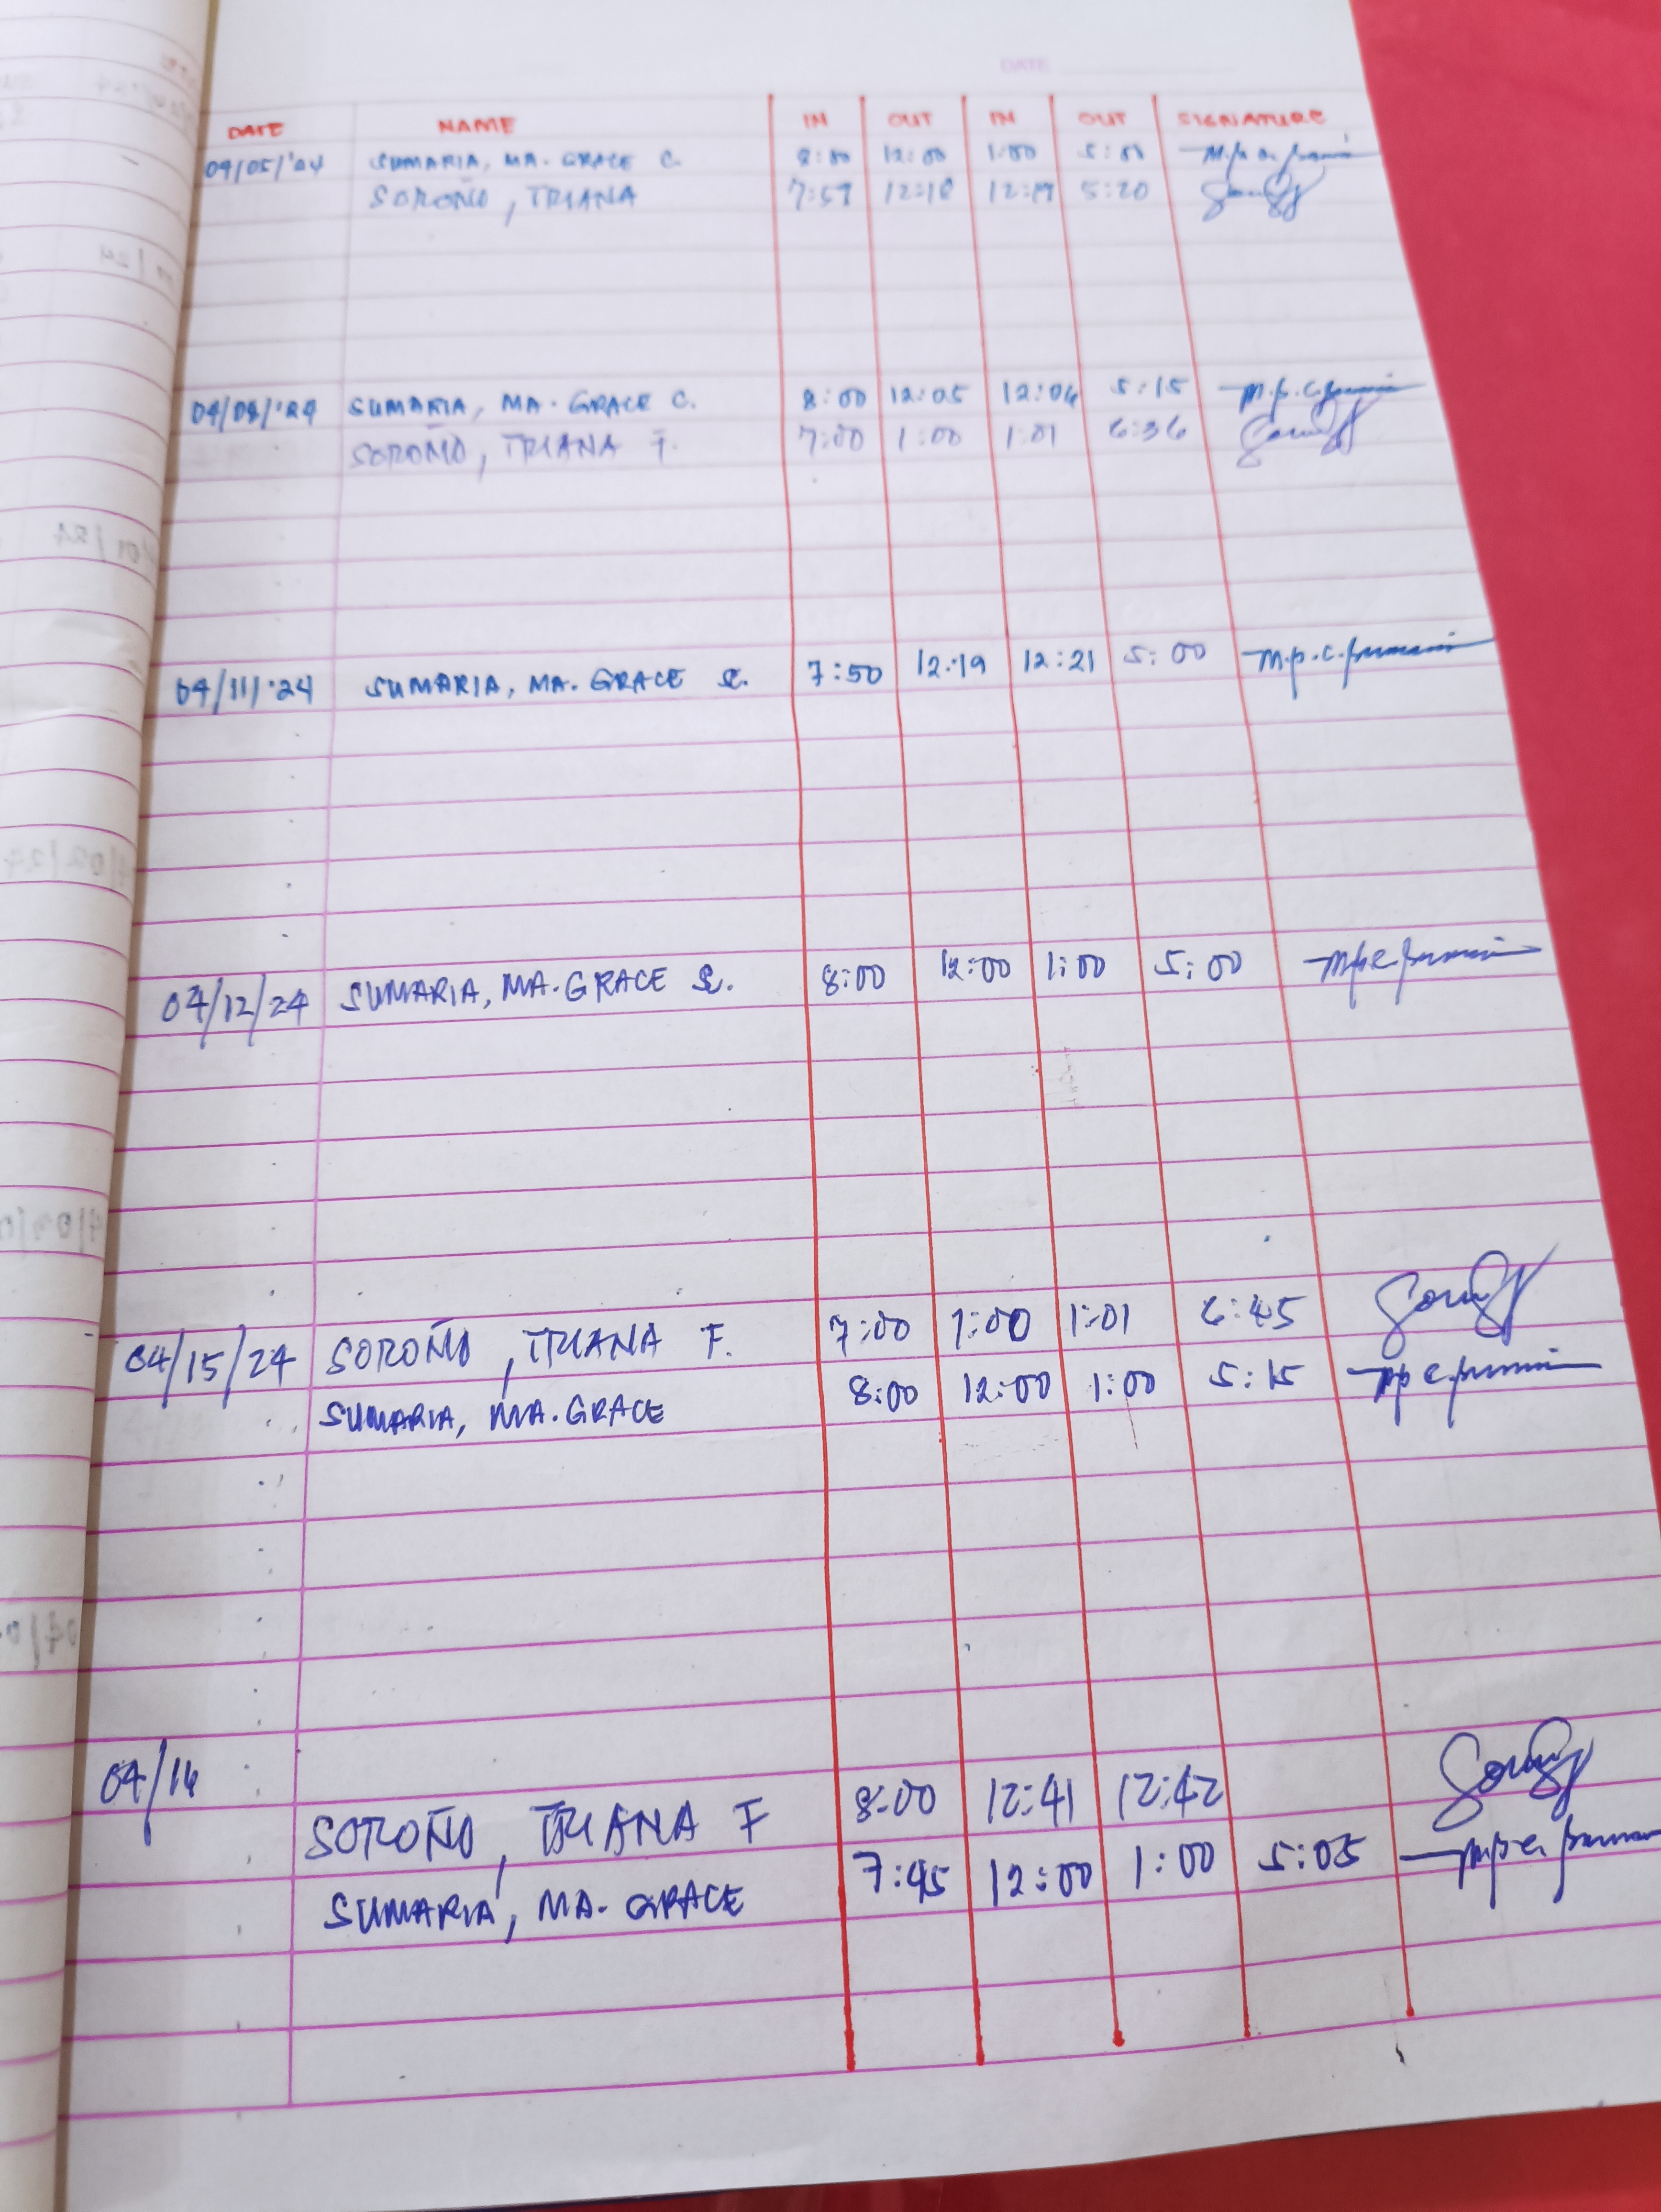 DATE
DATE NAME IN OUT IN OUT SIGNATURE
04/05/'24 SUMARIA, MA. GRACE C. 8:00 12:00 1:00 5:00
SOROÑO, TRIANA 7:59 12:18 12:19 5:20
04/08/'24 SUMARIA, MA. GRACE C. 8:00 12:05 12:06 5:15
SOROÑO, TRIANA F. 7:00 1:00 1:01 6:36
04/11/'24 SUMARIA, MA. GRACE C. 7:50 12:19 12:21 5:00
04/12/24 SUMARIA, MA. GRACE C. 8:00 12:00 1:00 5:00
04/15/24 SOROÑO, TRIANA F. 7:00 1:00 1:01 6:45
SUMARIA, MA. GRACE 8:00 12:00 1:00 5:15
04/16
SOROÑO, TRIANA F 8:00 12:41 12:42
SUMARIA, MA. GRACE 7:45 12:00 1:00 5:05